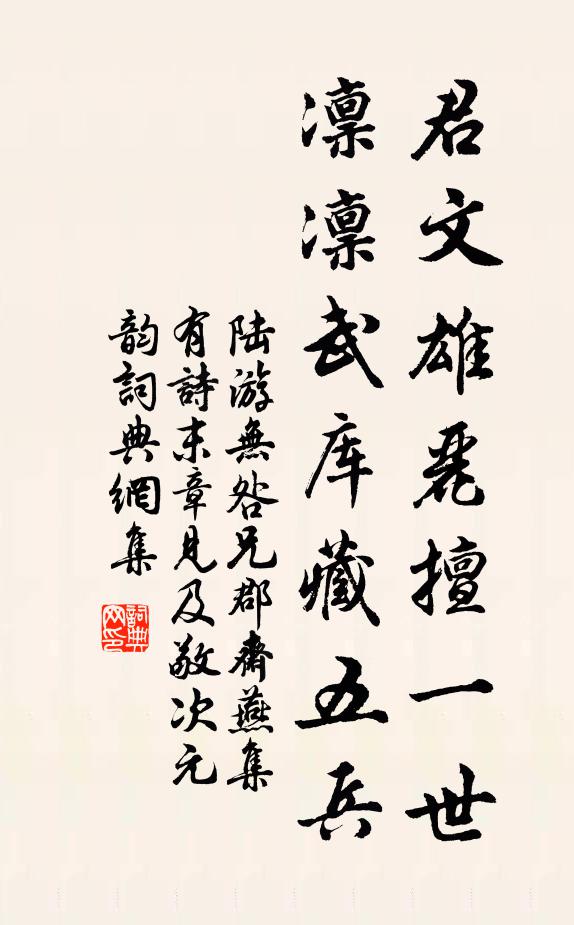 君文雄麗擅一世
凛凛武库藏五兵
陆游無咎兄郡齋燕集
有詩末章見及敬次元
韵詞典網集
詞典
网印